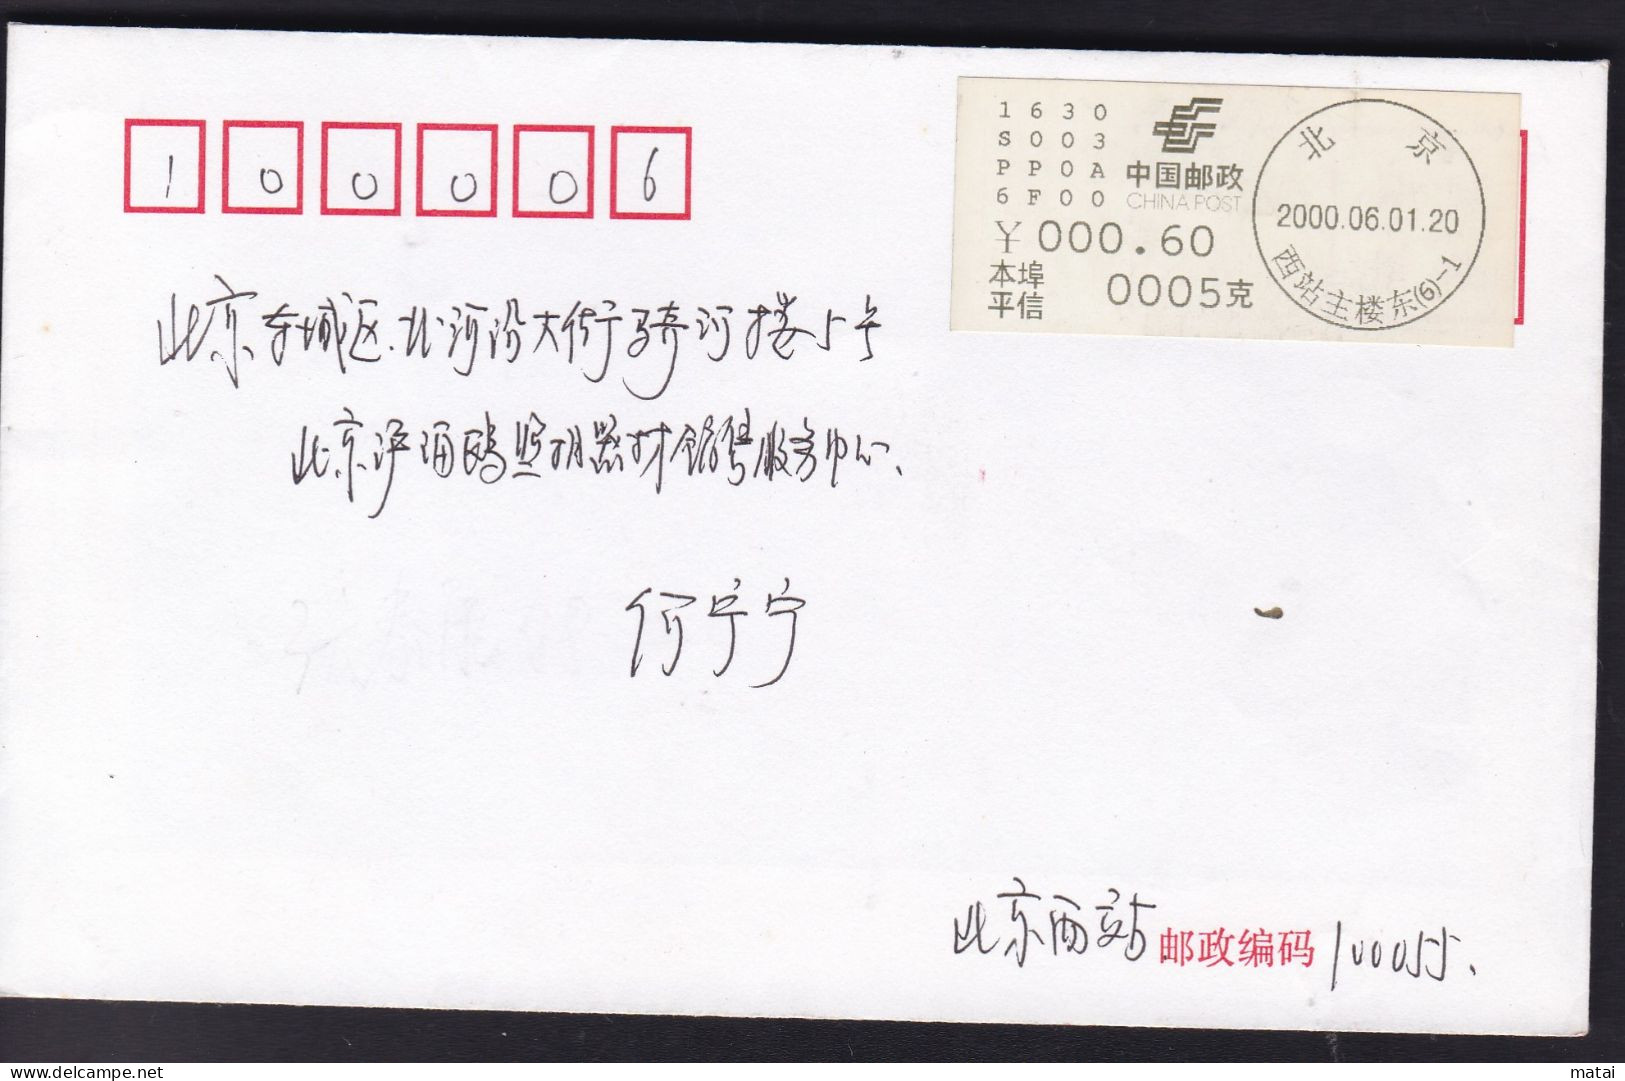 100006
1630
S003
PP0A
6F00
中国邮政
CHINA POST
¥ 000.60
本埠
平信
0005克
北 京
2000.06.01.20
西站主楼东(6)-1
北京东城区北河沿大街骑河楼5号
北京沪通鸥照明器材销售服务中心、
何宁宁
北京西站 邮政编码 100055、
delcampe.net
matai